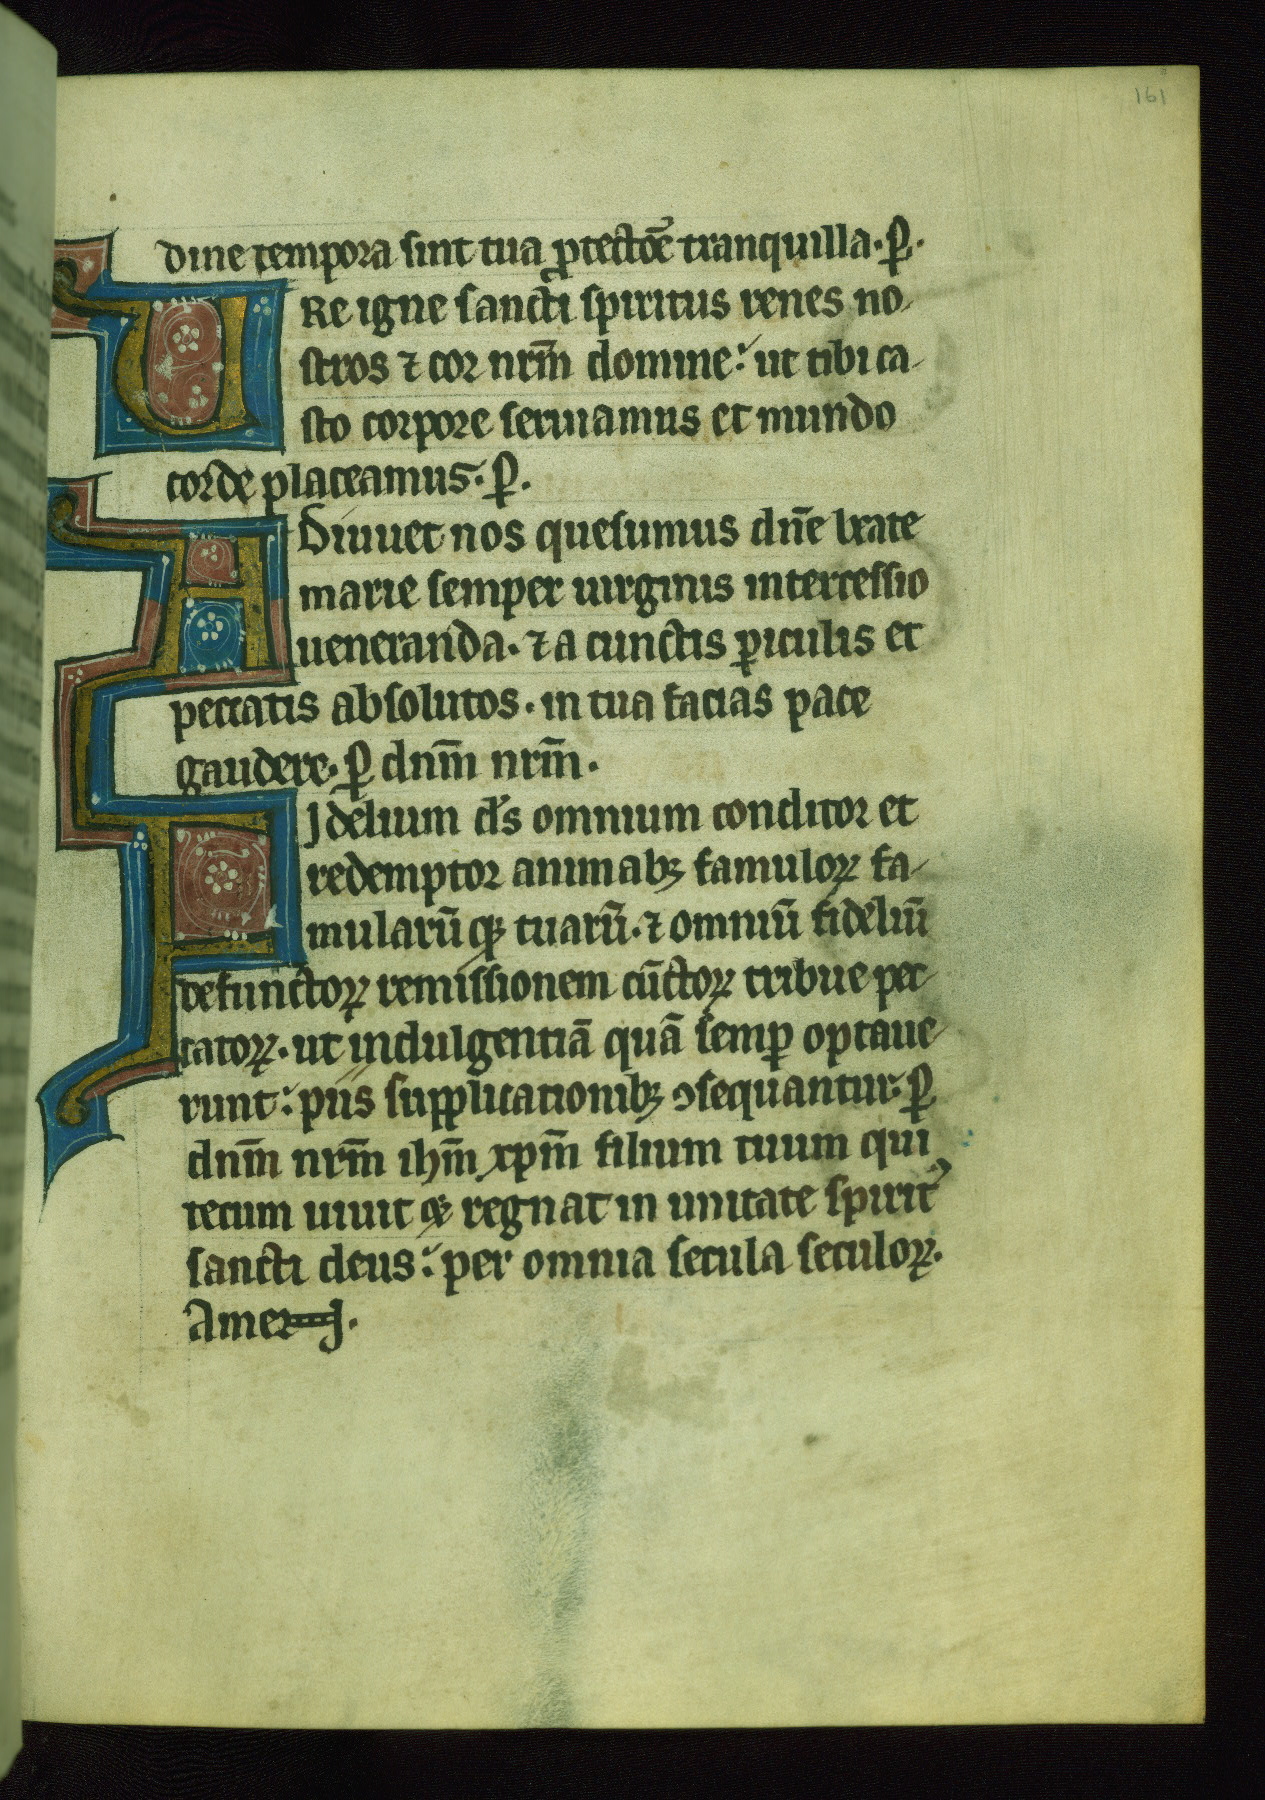 161
dine tempora sint tua ꝓtectōe tranquilla. ꝑ.
URe igne sancti spiritus renes no-
stros ⁊ cor nrm̄ domine: ut tibi ca-
sto corpore seruiamus et mundo
corde placeamus. ꝑ.
ADiuuet nos quesumus dn̄e beate
marie semper uirginis intercessio
ueneranda. ⁊ a cunctis ꝑiculis et
peccatis absolutos. in tua facias pace
gaudere. ꝑ dnm̄ nrm̄.
FJdelium ds̄ omnium conditor et
redemptor animabꝫ famuloꝝ fa-
mularū qꝫ tuarū. ⁊ omniū fideliū
defunctoꝝ remissionem cūctoꝝ tribue pec-
catoꝝ. ut indulgentiā quā semꝑ optaue-
runt: piis supplicationibꝫ ꝯsequantur. ꝑ
dnm̄ nrm̄ ihm̄ xpm̄ filium tuum qui
tecum uiuit qꝫ regnat in unitate spirit᾽
sancti deus: per omnia secula seculoꝝ.
Amen.